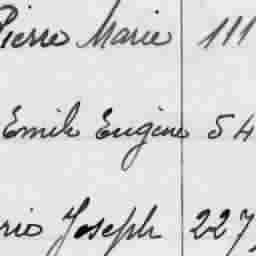 Pierre Marie 111
Emile Eugène 54
rio Joseph 227